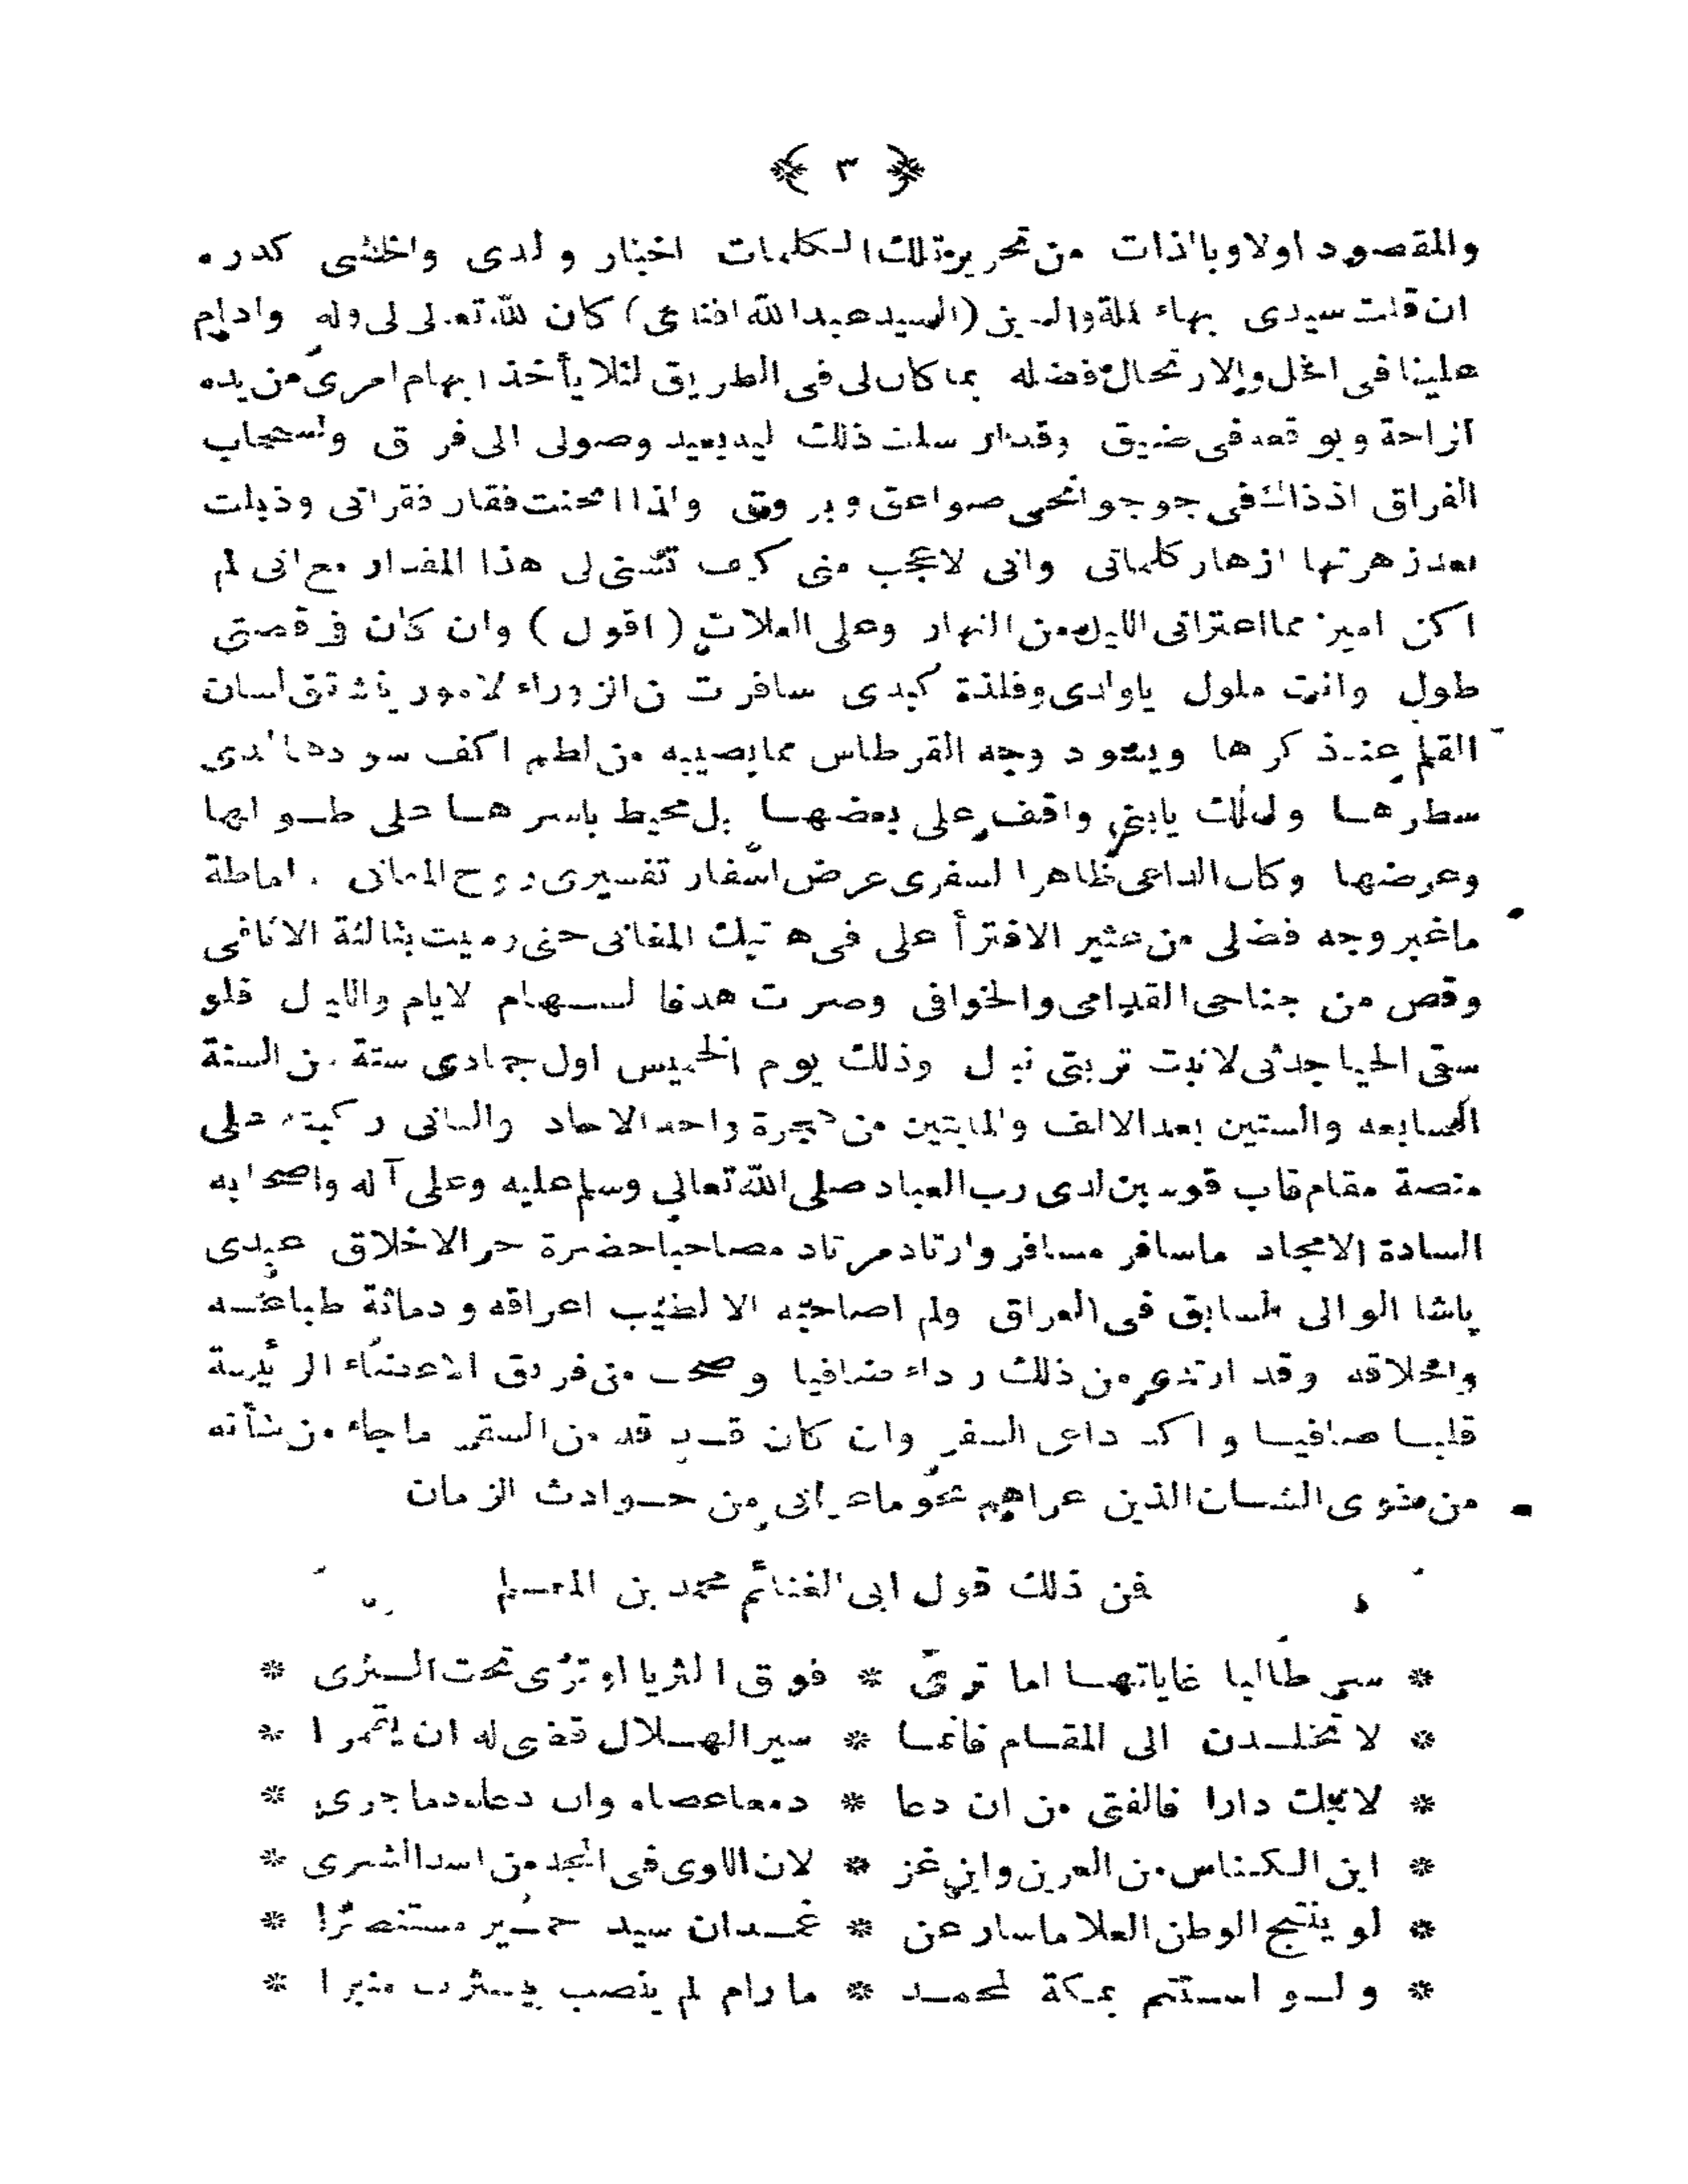 ﴿ ٣ ﴾
والمقصود اولا وبالذات من تحرير تلك الكلمات اخبار ولدى واخشى كدره
ان قلت سيدى بهاء الملة والدين (السيد عبدالله افندى) كان لله تعالى لى وله وادام
علينا فى الحل والارتحال فضله بما كان لى فى الطريق لئلا يأخذ ابهام امرى من يده
الراحة ويوقعه فى ضيق وقد ارسلت ذلك ليد بعيد وصولى الى فروق ولسحاب
الفراق اذ ذاك فى جوجوانحى صواعق وبروق ولذا انحنت فقار فقراتى وذبلت
بعد زهرتها ازهار كلماتى وانى لاعجب منى كيف تسنى لى هذا المقدار مع انى لم
اكن اميز مما اعترانى الليل من النهار وعلى العلات (اقول) وان كان فى قصتى
طول وانت ملول ياولدى وفلذة كبدى سافرت من الزوراء لامور ينشق لسان
القلم عند ذكرها ويسود وجه القرطاس مما يصيبه من لطم اكف سودها لدى
سطرها ولعلك يابنى واقف على بعضها بل محيط باسرها على طولها
وعرضها وكان الداعى ظاهرا لسفرى عرض اسفار تفسيرى روح المعانى . اماطة
ماغبر وجه فضلى من عثير الافترأ على فى هاتيك المغانى حتى رميت بثالثة الاثافى
وقص من جناحى القدامى والخوافى وصرت هدفا لسهام الايام والليال فلو
سقى الحيا جدثى لانبت تربتى نبال وذلك يوم الخميس اول جمادى ستة من السنة
السابعه والستين بعد الالف والمايتين من هجرة واحد الاحاد والثانى ركبته على
منصة مقام قاب قوسين لدى رب العباد صلى الله تعالى وسلم عليه وعلى آله واصحابه
السادة الامجاد ماسافر مسافر وارتاد مرتاد مصاحبا حضرة حر الاخلاق عبدى
پاشا الوالى السابق فى العراق ولم اصاحبه الا لطيب اعراقه ودماثة طباعه
واخلاقه وقد ارتدى من ذلك رداء ضافيا وصحب من فريق الاعضاء الرئيسة
قلبا صافيا واكد داعى السفر وان كان قد قد من السقر ماجاء من شأنه
من ذوى الشان الذين عراهم نحو ماعرانى من حوادث الزمان
فمن ذلك قول ابى الغنائم محمد بن المعلم
* سر طالبا غاياتها اما ترى * فوق الثريا او ترى تحت الثرى *
* لا تخلدن الى المقام فانما * سير الهلال قضى له ان يقمرا *
* لاتبك دارا فالفتى من ان دعا * دمعا عصاه وان دعاه دما جرى *
* اين الكناس من العرين واين غز * لان اللوى فى المجد من اسد الشرى *
* لو ينتج الوطن العلا ماسار عن * غمدان سيد حمير مستنصرا *
* ولو استتم بمكة لمحمد * مارام لم ينصب بيثرب منبرا *